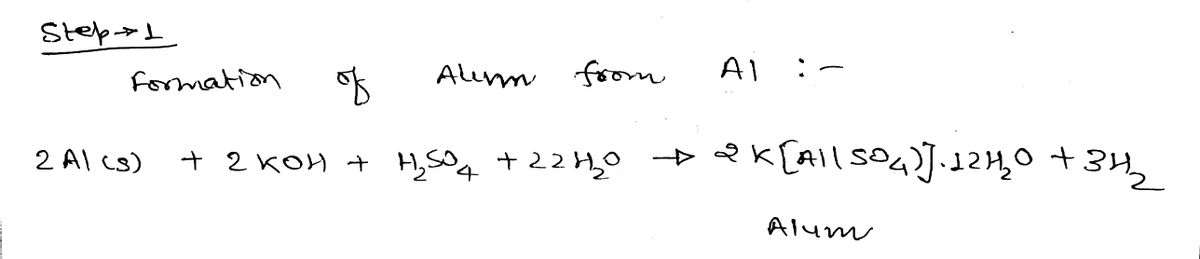 Step → 1
Formation of Alum from Al :-
2 Al (s) + 2 KOH + H₂SO₄ + 22 H₂O → 2 K[Al(SO₄)].12H₂O + 3H₂
Alum